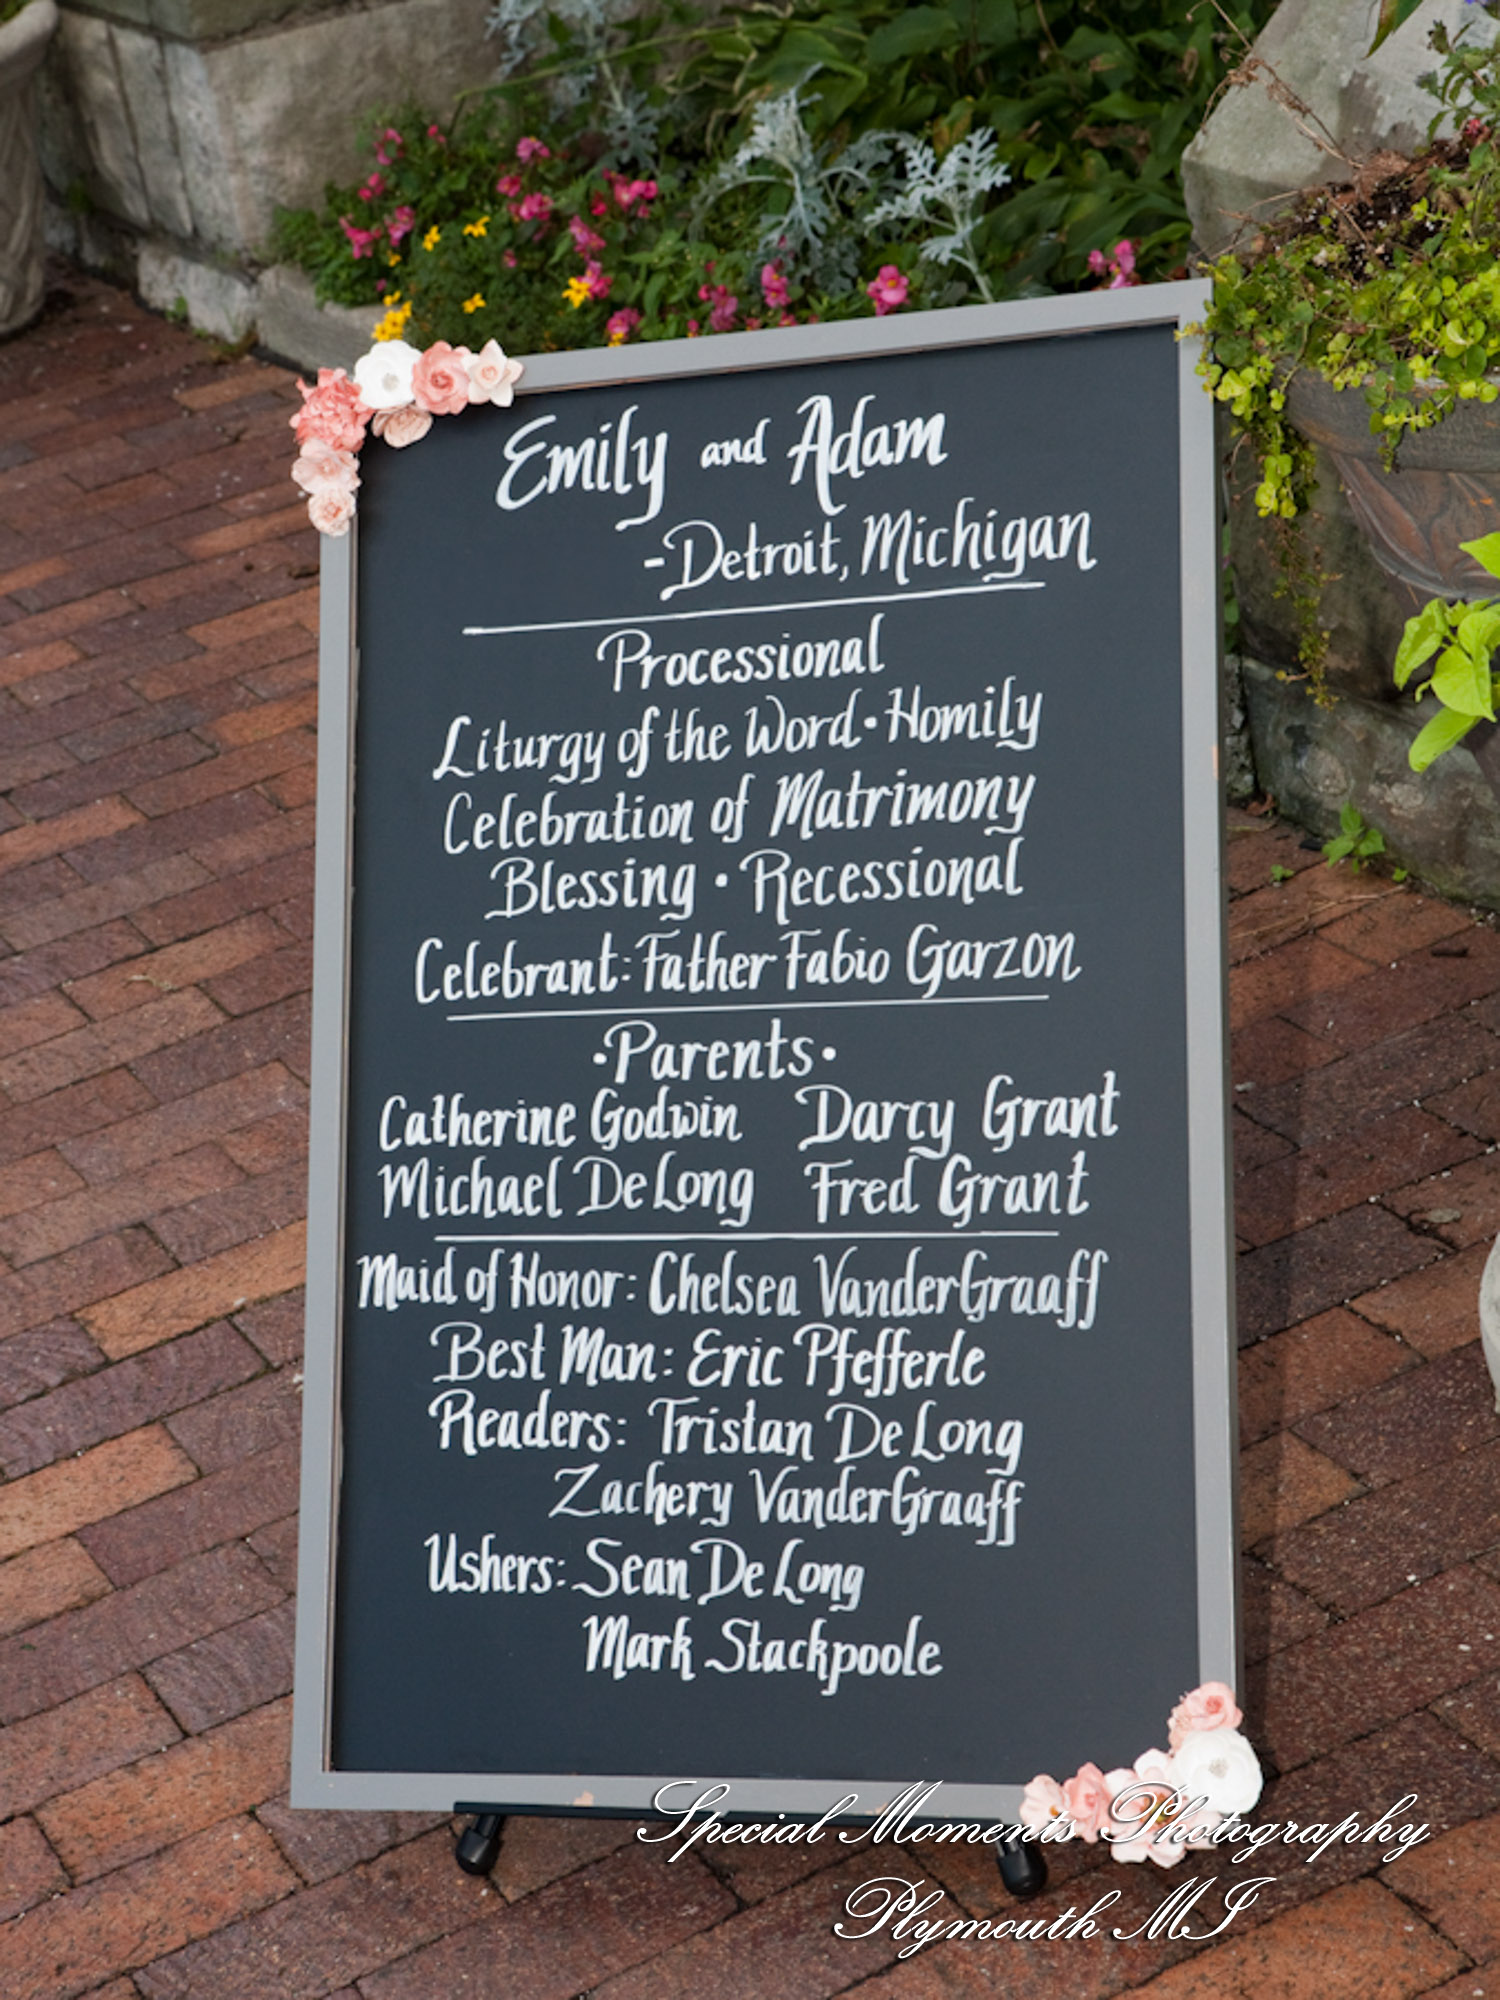 Emily and Adam
-Detroit, Michigan
Processional
Liturgy of the Word • Homily
Celebration of Matrimony
Blessing • Recessional
Celebrant: Father Fabio Garzon
• Parents •
Catherine Godwin Darcy Grant
Michael DeLong Fred Grant
Maid of Honor: Chelsea VanderGraaff
Best Man: Eric Pfefferle
Readers: Tristan DeLong
Zachery VanderGraaff
Ushers: Sean DeLong
Mark Stackpoole
Special Moments Photography
Plymouth MI